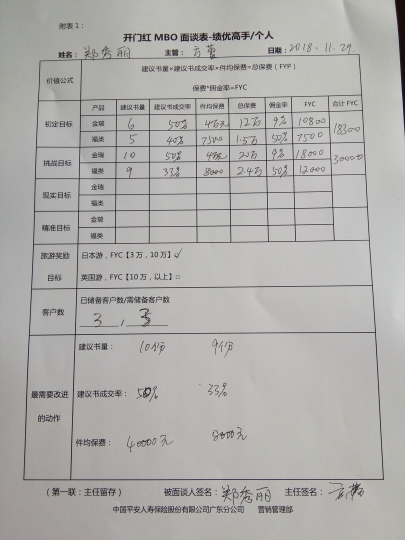 附表1：
开门红 MBO 面谈表-绩优高手/个人
姓名：郑秀丽 主管： 日期：2018.11.29
价值公式 建议书量×建议书成交率×件均保费=总保费（FYP）
保费*佣金率=FYC
产品 建议书量 建议书成交率 件均保费 总保费 佣金率 FYC 合计 FYC
初定目标 金瑞 6 50% 4万元 12万 9% 10800 18300
福类 5 40% 7500 1.5万 50% 7500
挑战目标 金瑞 10 50% 4万元 20万 9% 18000 30000
福类 9 33% 8000 2.4万 50% 12000
现实目标 金瑞
福类
精准目标 金瑞
福类
旅游奖励 日本游，FYC【3万，10万】☑
目标 英国游，FYC【10万，以上】□
客户数 已储备客户数/需储备客户数
3 , 5
建议书量： 10份 9份
最需要改进的动作 建议书成交率： 50% 33%
件均保费： 40000元 8000元
（第一联：主任留存） 被面谈人签名：郑秀丽 主任签名：
中国平安人寿保险股份有限公司广东分公司 营销管理部